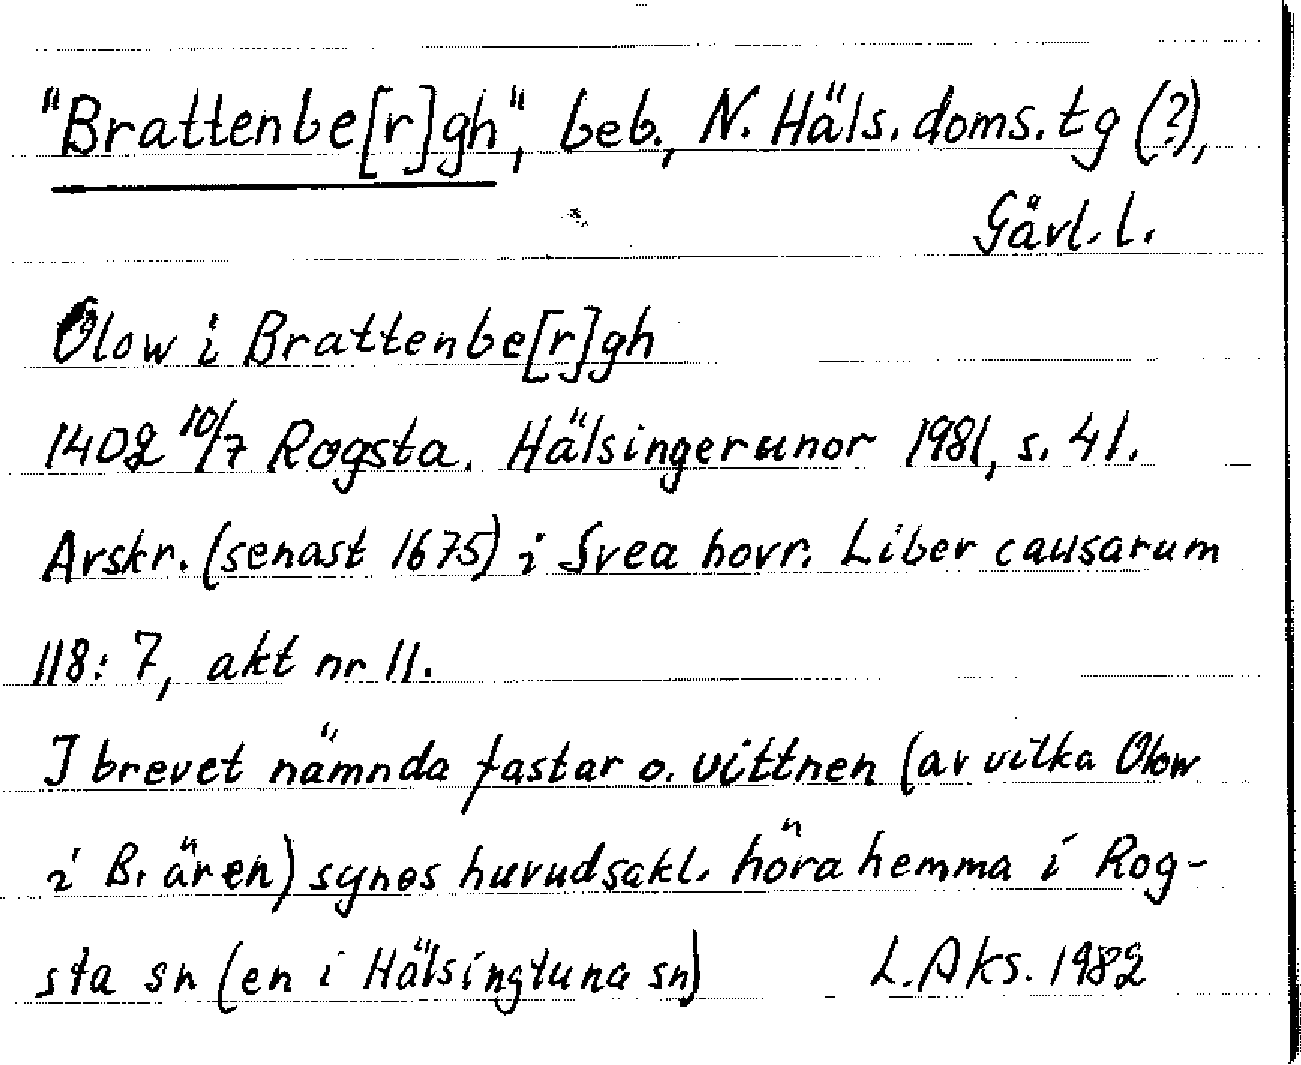 "Brattenbe[r]gh", beb., N. Häls. doms. tg (?),
Gävl. l.
Olow i Brattenbe[r]gh
1402 10/7 Rogsta. Hälsingerunor 1981, s. 41.
Avskr. (senast 1675) i Svea hovr. Liber causarum
118: 7, akt nr 11.
I brevet nämnda fastar o. vittnen (av vilka Olow
i B. är en) synes huvudsakl. höra hemma i Rog-
sta sn (en i Hälsingtuna sn) L. Aks. 1982